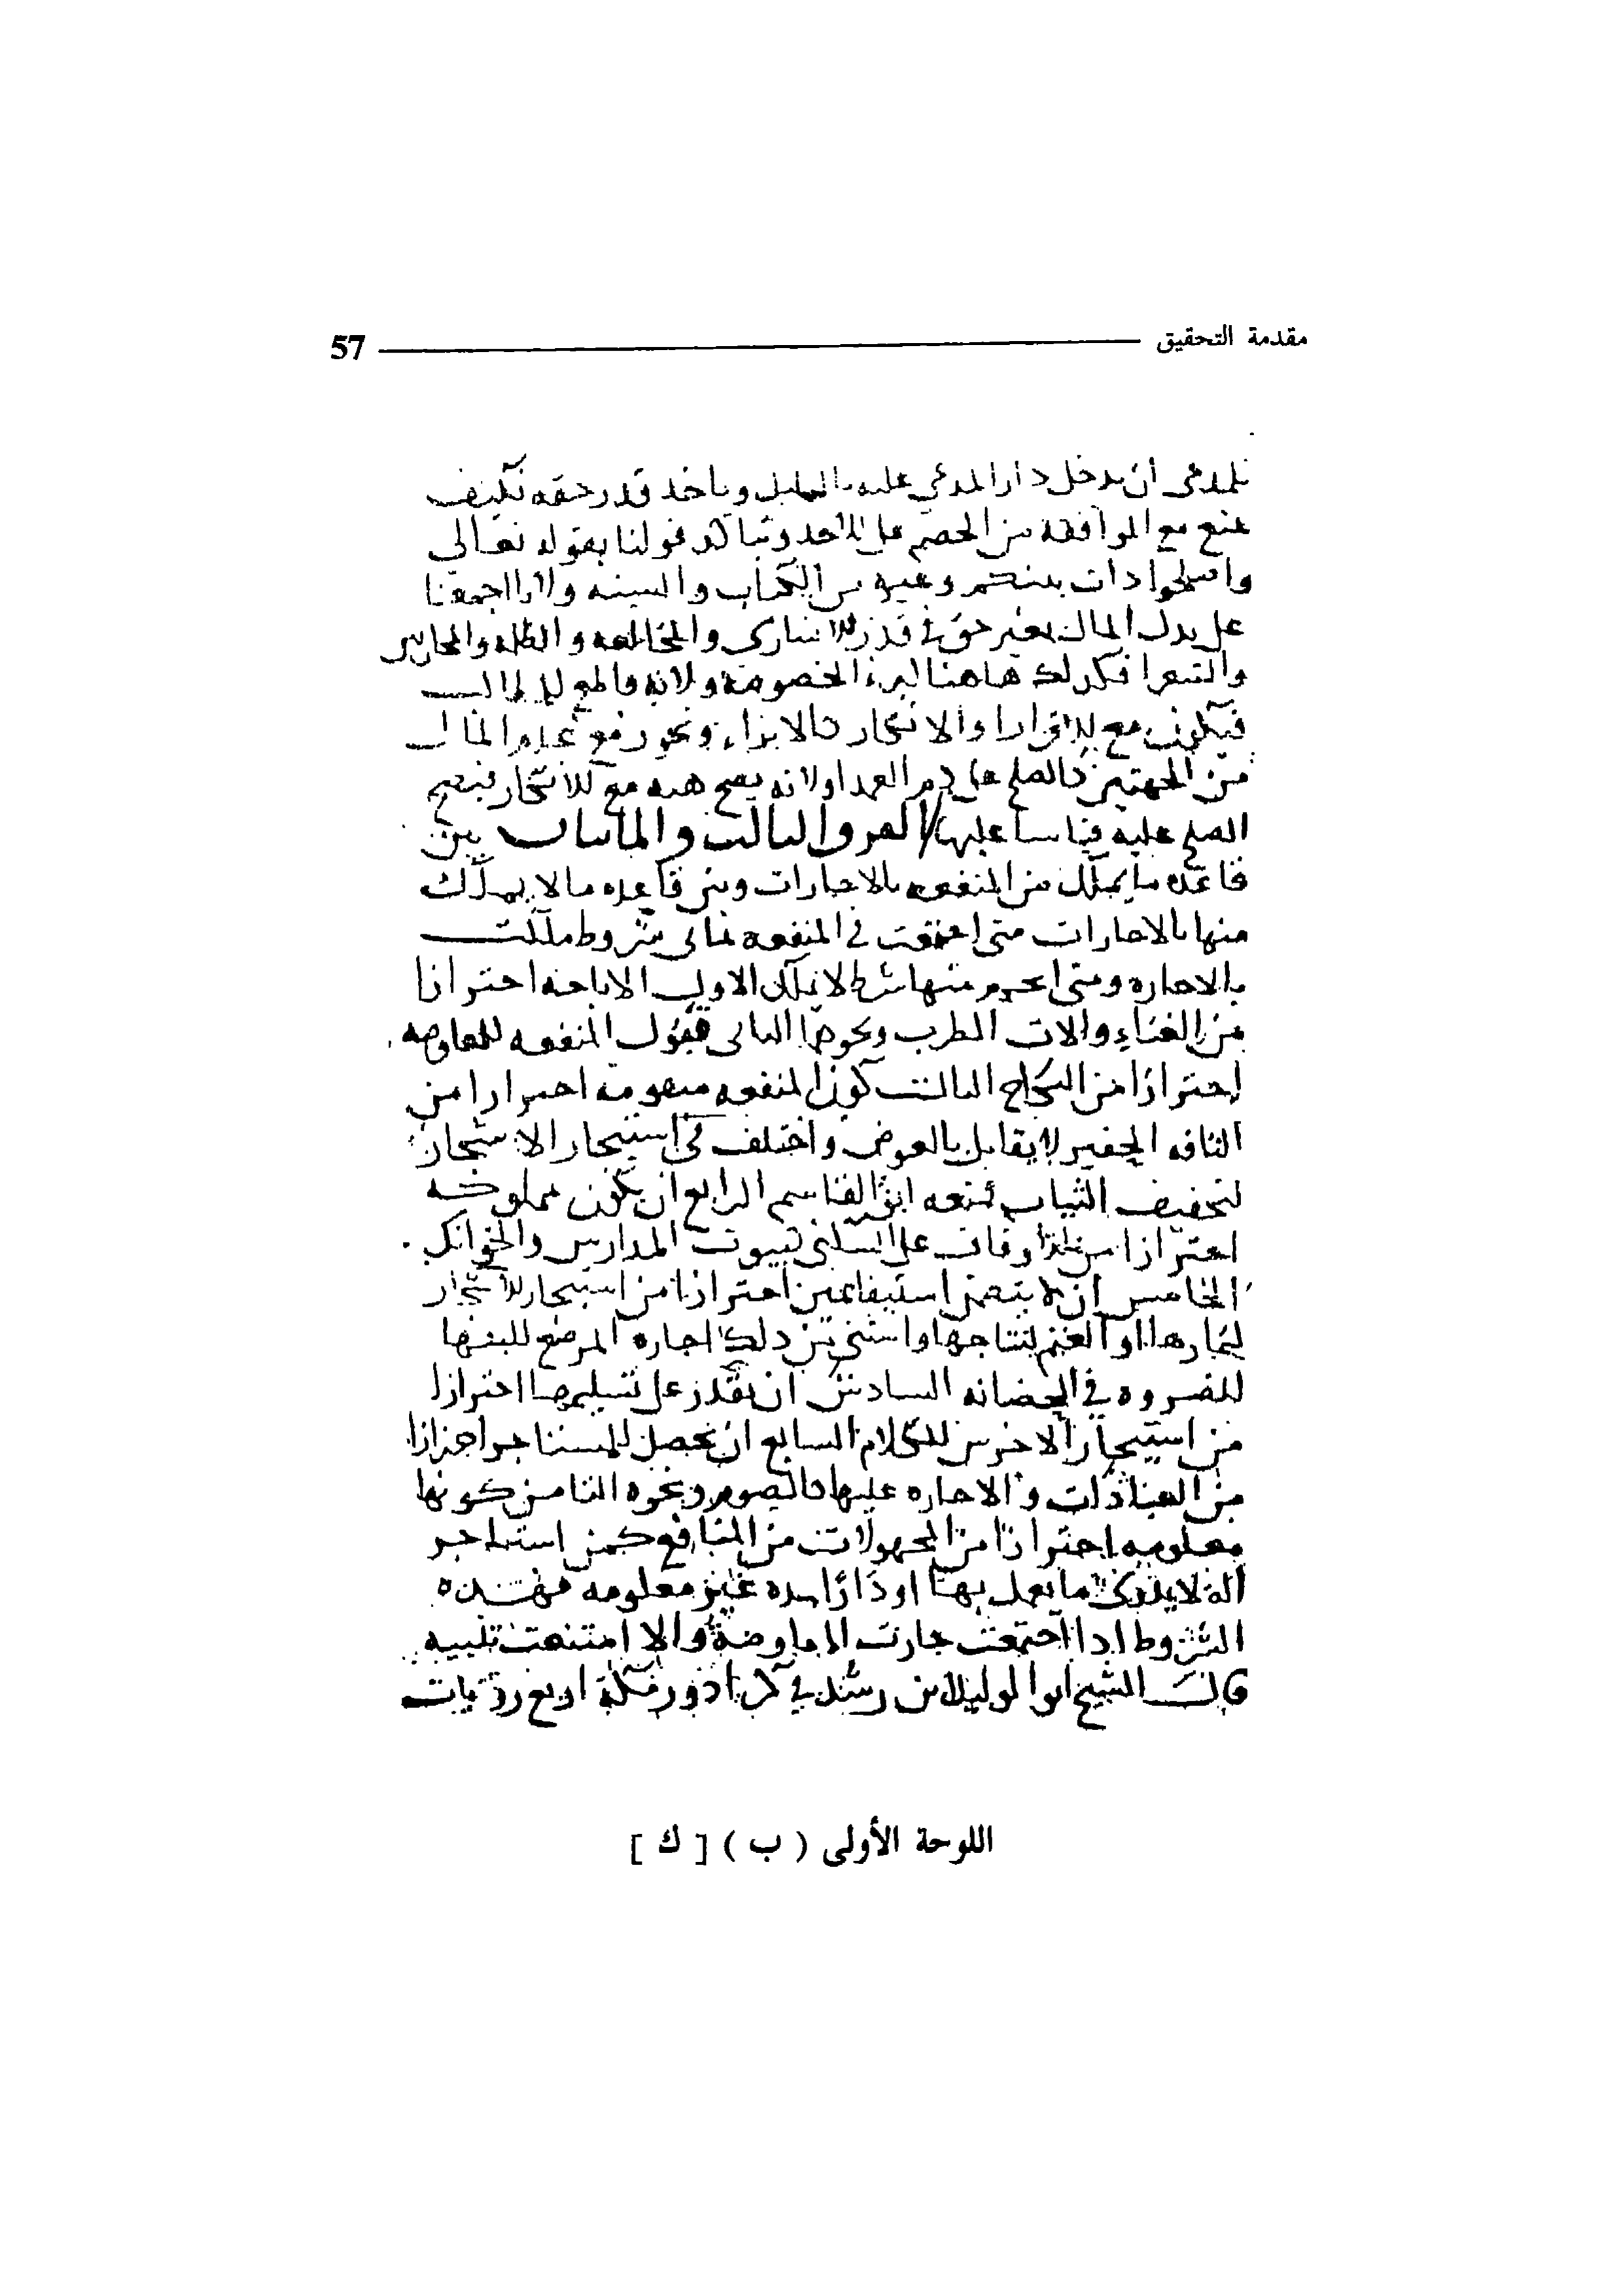 مقدمة التحقيق 57
للمدعى أن يدخل دار المدعى عليه بالليل وياخذ قدر حقه فكيف
يمنع مع الموافقة من الخصم على الاخذ وتتأكد قولنا بقوله تعالى
واصلحوا ذات بينكم وغيره من الكتاب والسنه ولانا اجمعنا
على بدل المال بغير حق في فدا الاسارى والمخالعه والظلمه والمحاربين
والشعرا فكذلك هاهنا لدرء الخصومة ولانه قاطع للمطالب
فيكون مع الاقرار والانكار كالابراء ونحو رفع عدم المال
من الجهتين كالصلح على دم العمد اولانه يصح هبه مع الانكار فيصح
الصلح عليه قياسا عليها الفرق الثالث والمائتان بين
قاعدة ما يملك من المنفعه بالاجارات وبين قاعده مالا يملك
منها بالاجارات متى اجتمعت في المنفعه ثماني شروط ملكت
بالاجاره ومتى انخرم منها شرط لا يملك الاول الاباحه احترازا
من الغناء والات الطرب ونحوها الثانى قبول المنفعه للمعاوضه
احترازا من النكاح الثالث كون المنفعه متقومة احترازا من
التافه الحقير لا يقابل بالعوض واختلف في استيجار الاشجار
لتجفيف الثياب فمنعه ابن القاسم الرابع ان يكون مملوكه
احترازا من الاوقات على السكنى كبيوت المدارس والخوانك
الخامس ان لا يتضمن استيفا عين احترازا من استيجار الاشجار
لثمارها او الغنم لنتاجها واستثنى من ذلك اجاره المرضع للبنها
للضروره في الحضانه السادس ان يقدر على تسليمها احترازا
من استيجار الاخرس للكلام السابع ان تحصل للمستاجر احترازا
من العبادات والاجاره عليها كالصوم ونحوه الثامن كونها
معلومه احترازا من المجهولات من المنافع كمن استاجر
آلة لا يدري ما يعمل بها او دارا مده غير معلومه فهذه
الشروط اذا اجتمعت جازت المعاوضة والا امتنعت تنبيه
قال الشيخ ابو الوليد بن رشد في كرا دور مكة اربع روايات
اللوحة الأولى ( ب ) [ ك ]